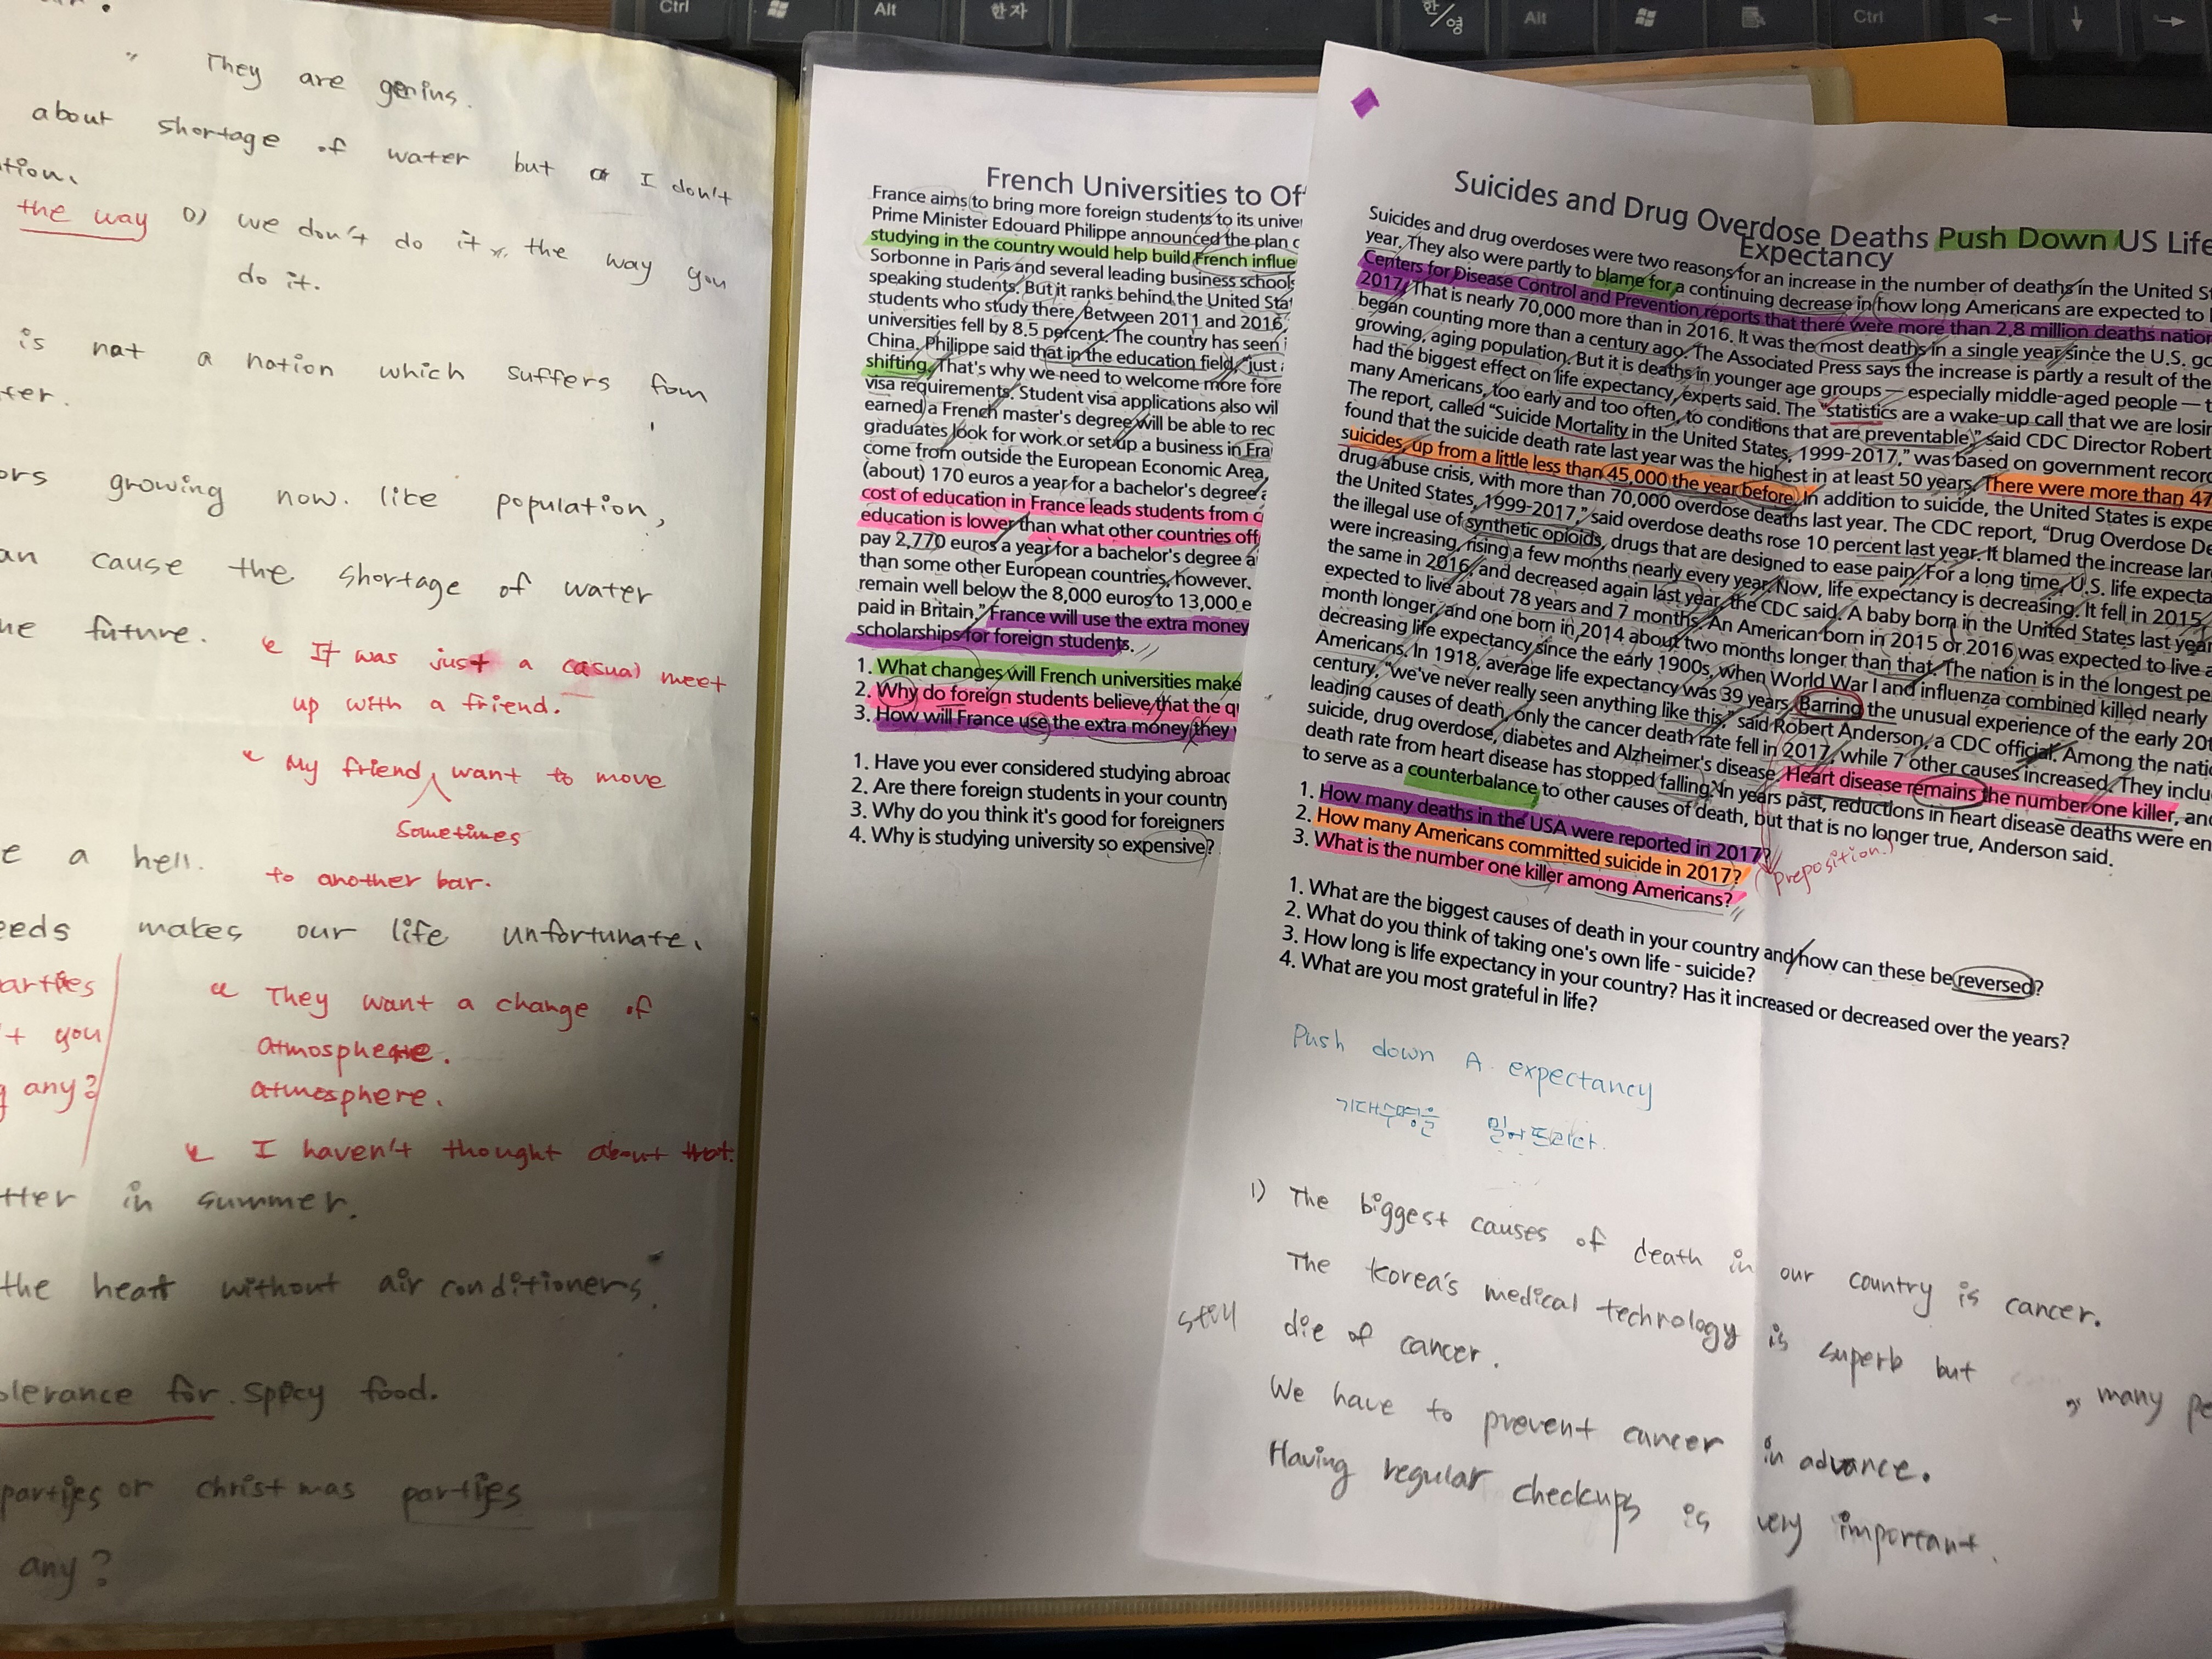 Ctrl
Alt
한자
한/영
Alt
Ctrl
They are genius.
about shortage of water but I don't
tion.
the way 0) we don't do it the way you
do it.
is not a nation which suffers fom
ter.
ors growing now. like population,
an cause the shortage of water
he future.
It was just a casual meet
up with a friend.
My friend want to move
Sometimes
to another bar.
e a hell.
eeds makes our life unfortunate.
arties
They want a change of
+ you
atmosphere.
any?
atmosphere.
I haven't thought about that.
tter in summer.
the heat without air conditioners.
olerance for spicy food.
parties or christmas parties
any?
French Universities to Of
France aims to bring more foreign students to its univer
Prime Minister Edouard Philippe announced the plan
studying in the country would help build French influe
Sorbonne in Paris and several leading business schools
speaking students. But it ranks behind the United Sta
students who study there. Between 2011 and 2016,
universities fell by 8.5 percent. The country has seen i
China. Philippe said that in the education field, "just
shifting. That's why we need to welcome more fore
visa requirements. Student visa applications also wil
earned a French master's degree will be able to rec
graduates look for work or set up a business in Fra
come from outside the European Economic Area
(about) 170 euros a year for a bachelor's degree a
cost of education in France leads students from c
education is lower than what other countries off
pay 2,770 euros a year for a bachelor's degree a
than some other European countries, however.
remain well below the 8,000 euros to 13,000 e
paid in Britain," France will use the extra money
scholarships for foreign students.
1. What changes will French universities make
2. Why do foreign students believe that the qu
3. How will France use the extra money they
1. Have you ever considered studying abroad
2. Are there foreign students in your country
3. Why do you think it's good for foreigners
4. Why is studying university so expensive?
Suicides and Drug Overdose Deaths Push Down US Life
Expectancy
Suicides and drug overdoses were two reasons for an increase in the number of deaths in the United St
year. They also were partly to blame for a continuing decrease in how long Americans are expected to l
Centers for Disease Control and Prevention reports that there were more than 2.8 million deaths nation
2017. That is nearly 70,000 more than in 2016. It was the most deaths in a single year since the U.S. go
began counting more than a century ago. The Associated Press says the increase is partly a result of the
growing, aging population. But it is deaths in younger age groups — especially middle-aged people — t
had the biggest effect on life expectancy, experts said. The "statistics are a wake-up call that we are losin
many Americans, too early and too often, to conditions that are preventable," said CDC Director Robert
The report, called "Suicide Mortality in the United States, 1999-2017," was based on government record
found that the suicide death rate last year was the highest in at least 50 years. There were more than 47
suicides, up from a little less than 45,000 the year before. In addition to suicide, the United States is expe
drug abuse crisis, with more than 70,000 overdose deaths last year. The CDC report, "Drug Overdose De
the United States, 1999-2017," said overdose deaths rose 10 percent last year. It blamed the increase lar
the illegal use of synthetic opioids, drugs that are designed to ease pain. For a long time, U.S. life expecta
were increasing, rising a few months nearly every year. Now, life expectancy is decreasing. It fell in 2015,
the same in 2016, and decreased again last year, the CDC said. A baby born in the United States last year
expected to live about 78 years and 7 months. An American born in 2015 or 2016 was expected to live a
month longer, and one born in 2014 about two months longer than that. The nation is in the longest pe
decreasing life expectancy since the early 1900s, when World War I and influenza combined killed nearly
Americans. In 1918, average life expectancy was 39 years. Barring the unusual experience of the early 20t
century, "we've never really seen anything like this," said Robert Anderson, a CDC official. Among the nati
leading causes of death, only the cancer death rate fell in 2017, while 7 other causes increased. They inclu
suicide, drug overdose, diabetes and Alzheimer's disease. Heart disease remains the number one killer, and
death rate from heart disease has stopped falling. In years past, reductions in heart disease deaths were en
to serve as a counterbalance to other causes of death, but that is no longer true, Anderson said.
1. How many deaths in the USA were reported in 2017?
2. How many Americans committed suicide in 2017?
3. What is the number one killer among Americans?
(preposition)
1. What are the biggest causes of death in your country and how can these be reversed?
2. What do you think of taking one's own life - suicide?
3. How long is life expectancy in your country? Has it increased or decreased over the years?
4. What are you most grateful in life?
Push down A. expectancy
기대수명을 밀어뜨리다.
1) The biggest causes of death in our country is cancer.
The Korea's medical technology is superb but many pe
still die of cancer.
We have to prevent cancer in advance.
Having regular checkups is very important.